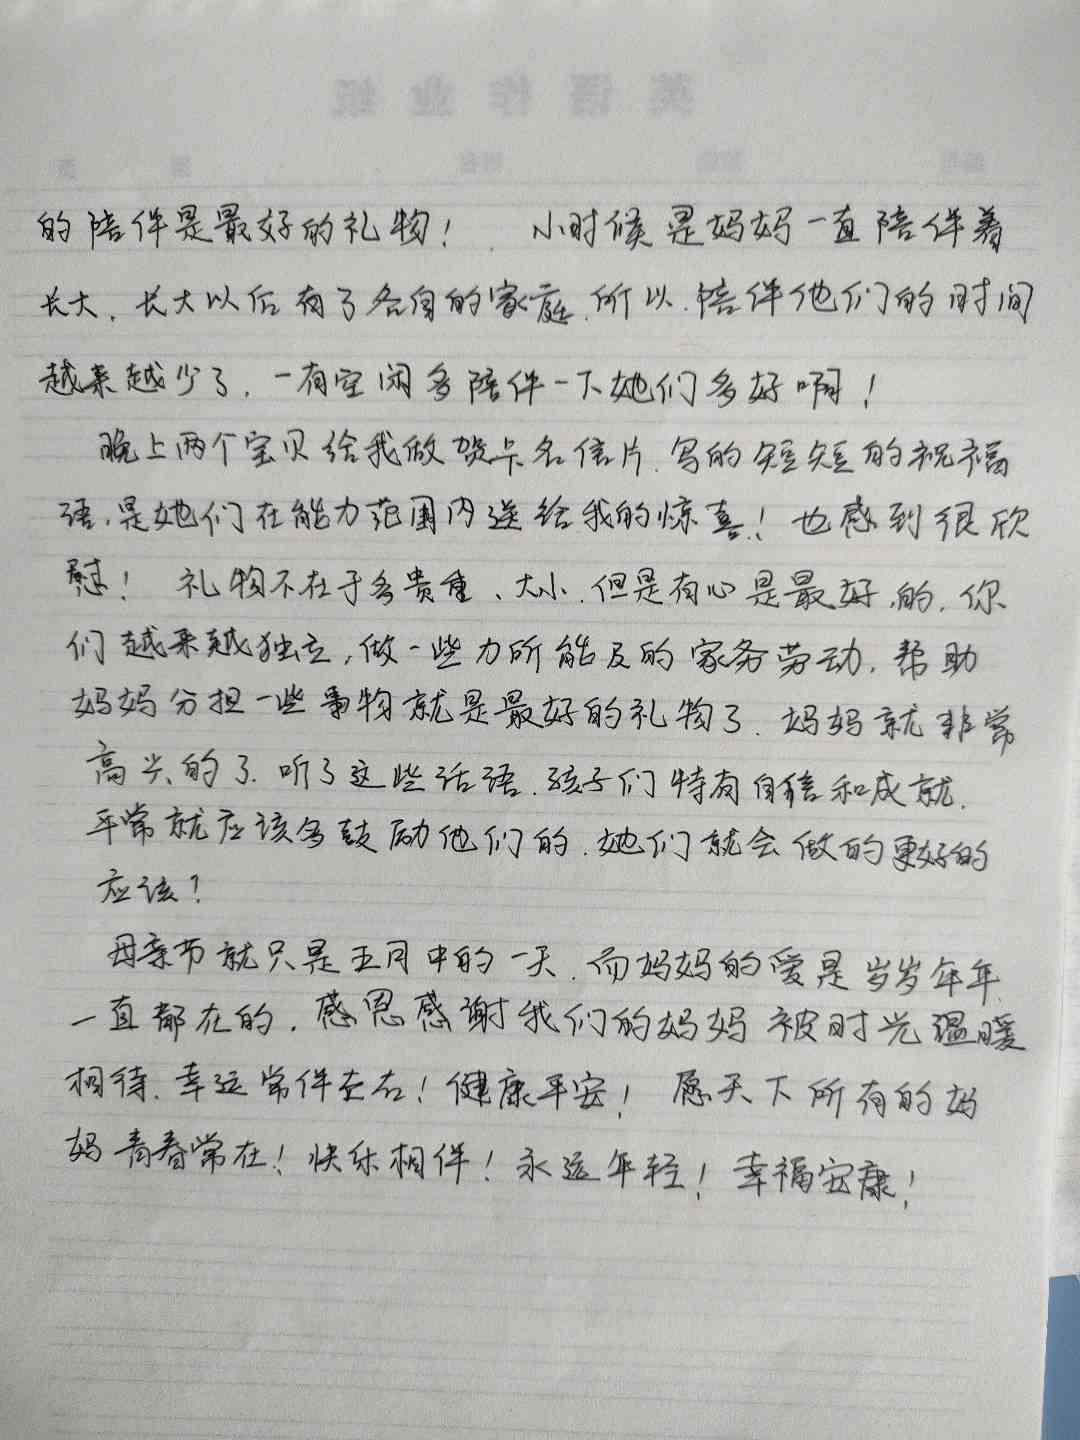 的陪伴是最好的礼物！ 小时候是妈妈一直陪伴着
长大、长大以后有了各自的家庭、所以、陪伴他们的时间
越来越少了、一有空闲多陪伴一下她们多好啊！
晚上两个宝贝给我做贺卡名信片、写的短短的祝福
语、是她们在能力范围内送给我的惊喜！也感到很欣
慰！ 礼物不在于多贵重、大小、但是有心是最好的、你
们越来越独立，做一些力所能及的家务劳动，帮助
妈妈分担一些事物就是最好的礼物了、妈妈就非常
高兴的了、听了这些话语、孩子们特有自信和成就、
平常就应该多鼓励他们的、她们就会做的更好的
应该？
母亲节就只是五月中的一天、而妈妈的爱是岁岁年年
一直都在的，感恩感谢我们的妈妈被时光温暖
相待、幸运常伴左右！健康平安！愿天下所有的妈
妈青春常在！快乐相伴！永远年轻！幸福安康！